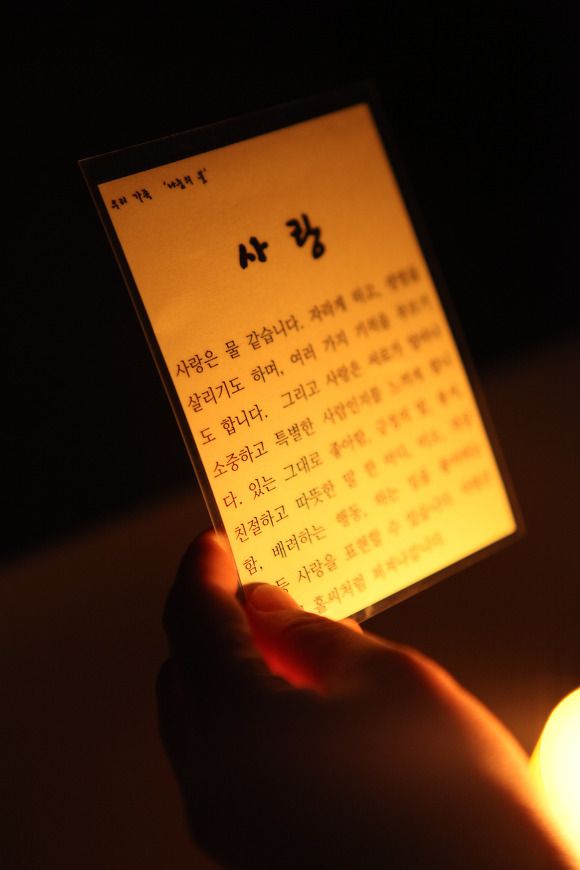 우리 가족
사랑
사랑은 물 같습니다. 자라게 하고, 생명을
살리기도 하며, 여러 가지 기적을
도 합니다. 그리고 사랑은 서로가 얼마나
소중하고 특별한 사람인지를 느끼게 합니
다. 있는 그대로 좋아함,
친절하고 따뜻한 말 한 마디, 미소,
함, 배려하는 행동, 하는 일을
등 사랑을 표현할 수 있습니다.
홀씨처럼 퍼져나갑니다.